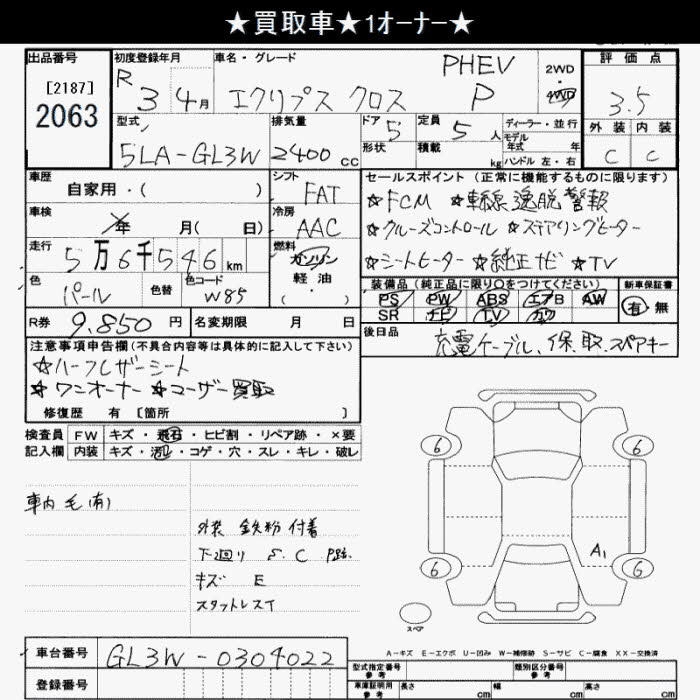 ★買取車★1オーナー★
出品番号 初度登録年月 車名・グレード 評価点
[2187]
2063
R 3年 4月 エクリプス クロス PHEV P 2WD・4WD 3.5
型式 排気量 ドア 定員 ディーラー・並行 外装 内装
5LA-GL3W 2400cc 5 5人 モデル年式 年 C C
形状 積載 kg ハンドル 左・右
車歴 シフト セールスポイント(正常に機能するものに限ります)
自家用・( ) FAT ☆FCM ☆車線逸脱警報
車検 年 月( 日) 冷房 AAC ☆クルーズコントロール ☆ステアリングヒーター
走行 5万6千546km 燃料 ガソリン 軽油 ( ) ☆シートヒーター ☆純正ナビ ☆TV
色 色替 色コード 装備品(純正品に限り○をつけてください) 新車保証書
パール W85 PS PW ABS エアB AW 有 無
SR ナビ TV カワ
R券 9,850円 名変期限 月 日 後日品 充電ケーブル、保、取、スペアキー
注意事項申告欄(不具合内容等は具体的に記入して下さい)
☆ハーフレザーシート
☆ワンオーナー ☆ユーザー買取
修復歴 有 [箇所 ]
検査員 FW キズ・飛石・ヒビ割・リペア跡・×要
記入欄 内装 キズ・汚レ・コゲ・穴・スレ・キレ・破レ
車内毛(有)
外装 鉄粉 付着
下廻り S. C P跡.
キズ E
スタットレス
6 6
A1
6 6
スペア
A-キズ E-エクボ U-凹み W-補修跡 S-サビ C-腐食 XX-交換済
車台番号 GL3W-0304022
型式指定番号 参考 類別区分番号 参考
登録番号 車庫証明用 参考 長さ cm 幅 cm 高さ cm